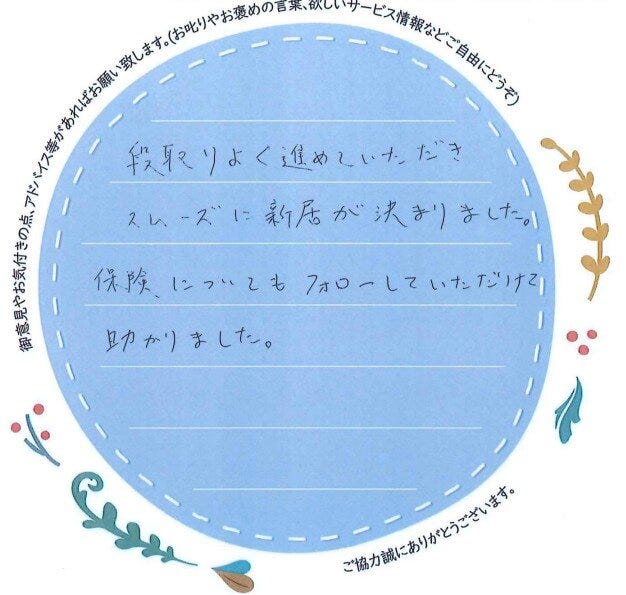 御意見やお気付きの点、アドバイス等があればお願い致します。(お叱りやお褒めの言葉、欲しいサービス情報などご自由にどうぞ)
段取りよく進めていただき
スムーズに新居が決まりました。
保険、についても フォローしていただけて
助かりました。
ご協力誠にありがとうございます。